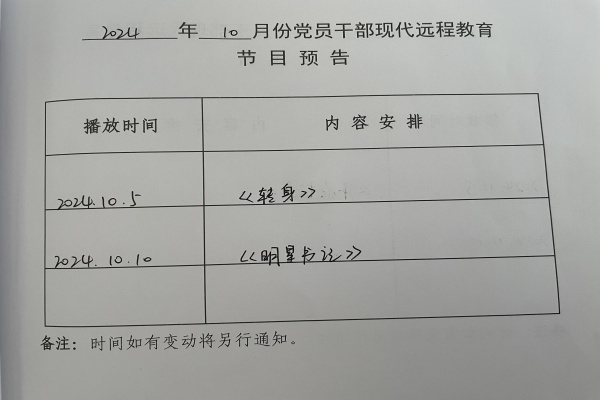 2024 年 10 月份党员干部现代远程教育
节目预告
播放时间 内容安排
2024.10.5 《转身》
2024.10.10 《明星书记》
备注：时间如有变动将另行通知。